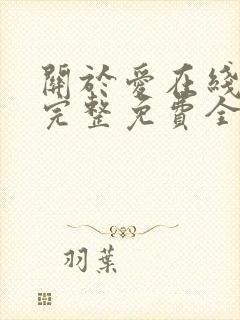 關於愛在綫
完整免費全
羽葉